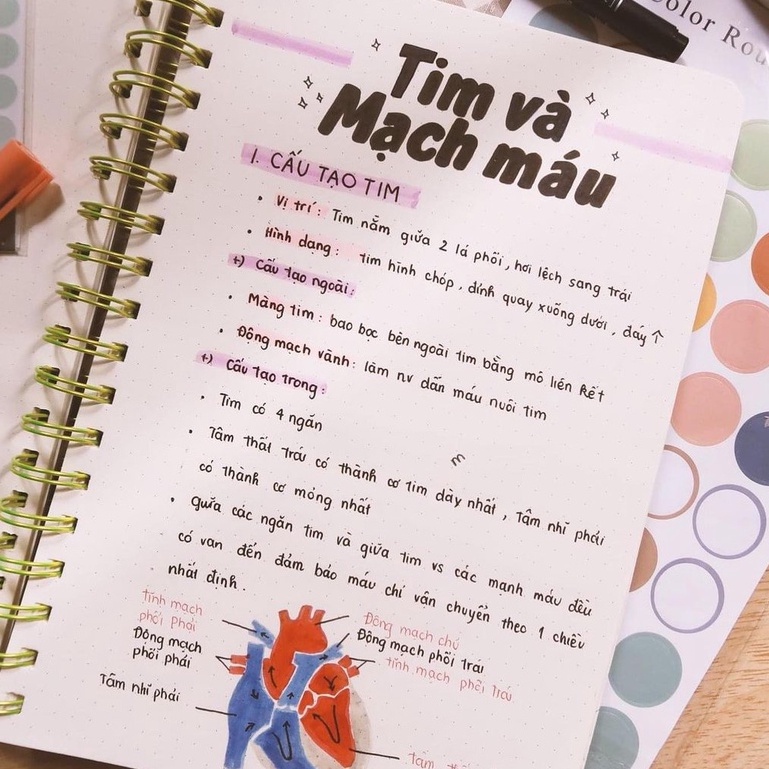 Color Rou
Tim và
Mạch máu
1. CẤU TẠO TIM
• Vị trí: Tim nằm giữa 2 lá phổi, hơi lệch sang trái
• Hình dạng: tim hình chóp, đỉnh quay xuống dưới, đáy ↑
+) Cấu tạo ngoài:
• Màng tim: bao bọc bên ngoài tim bằng mô liên kết
• Động mạch vành: làm nv dẫn máu nuôi tim
+) Cấu tạo trong:
• Tim có 4 ngăn
• Tâm thất trái có thành cơ tim dày nhất, Tâm nhĩ phải
có thành cơ mỏng nhất
• Giữa các ngăn tim và giữa tim vs các mạnh máu đều
có van đến đảm bảo máu chỉ vận chuyển theo 1 chiều
nhất định.
tĩnh mạch
phổi phải
Động mạch
phổi phải
Tâm nhĩ phải
Động mạch chủ
Động mạch phổi trái
tĩnh mạch phổi trái